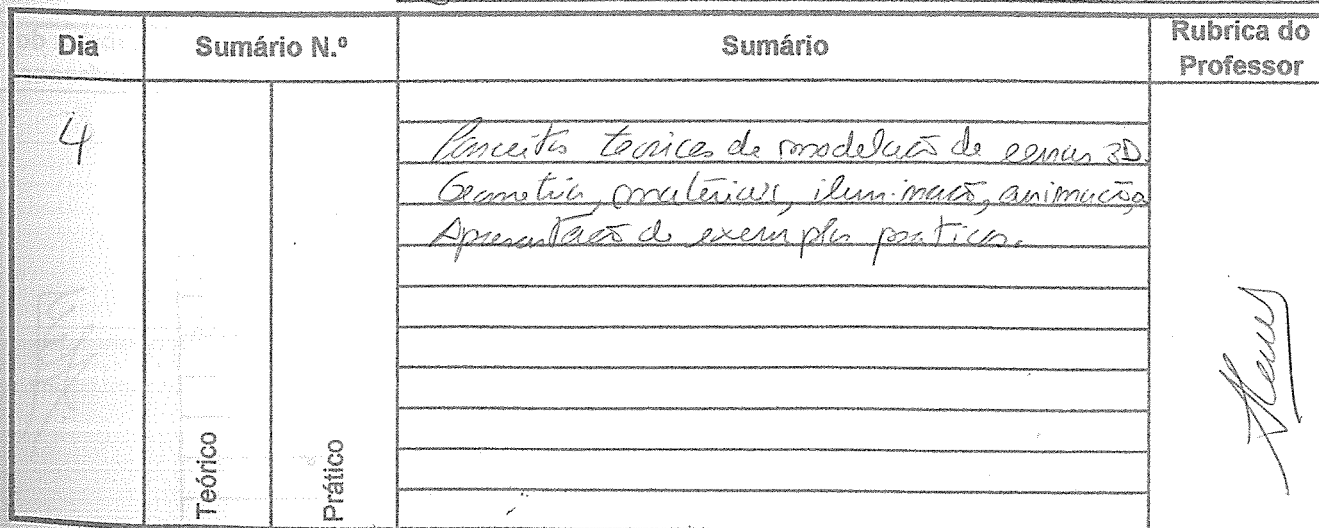 Dia Sumário N.º Sumário Rubrica do
Professor
4 Conceitos teóricos de modelação de cenas 3D.
Geometria, materiais, iluminação, animação,
Apresentação de exemplos práticos.
Teórico Prático